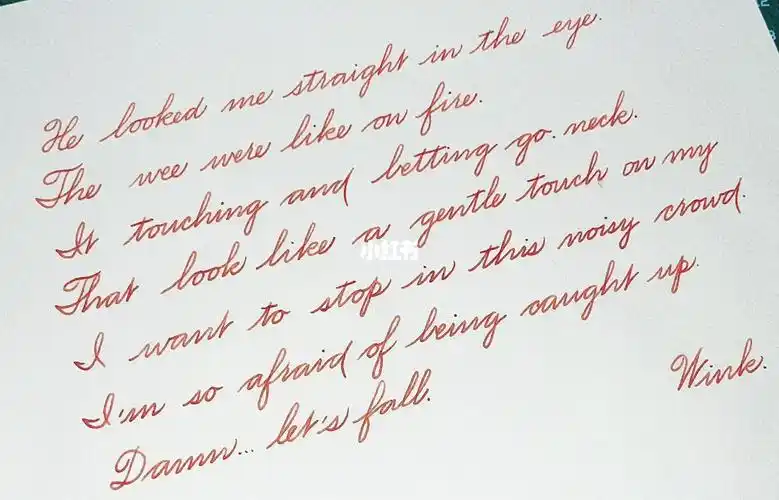 He looked me straight in the eye.
The wee were like on fire.
It touching and letting go. neck.
That look like a gentle touch on my
I want to stop in this noisy crowd.
I'm so afraid of being caught up.
Damn... let's fall.
Wink.
小红书